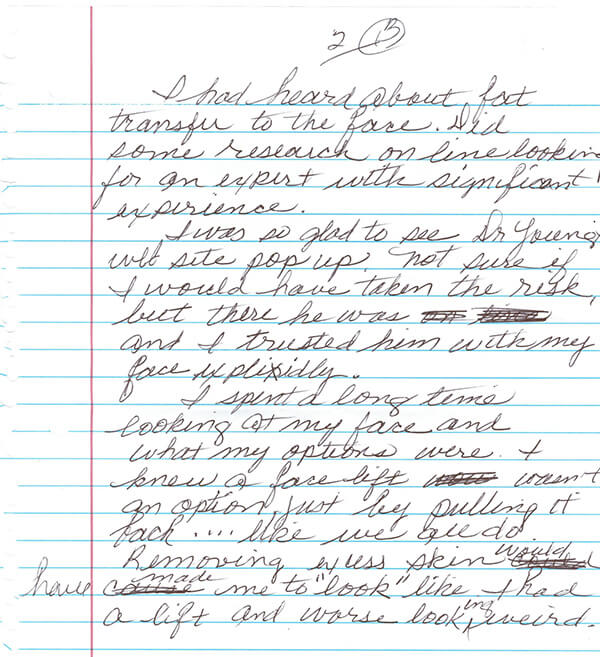 2 B
I had heard about fat
transfer to the face. Did
some research on line lookin
for an expert with significant
experience.
I was so glad to see Dr Young
web site pop up. Not sure if
I would have taken the risk,
but there he was on
and I trusted him with my
face explixidly.
I spent a long time
looking at my face and
what my options were. I
knew a face lift wasn't
an option, just by pulling it
back .... like we all do.
Removing exess skin would
have made me to "look" like I had
a lift and worse looking weird.